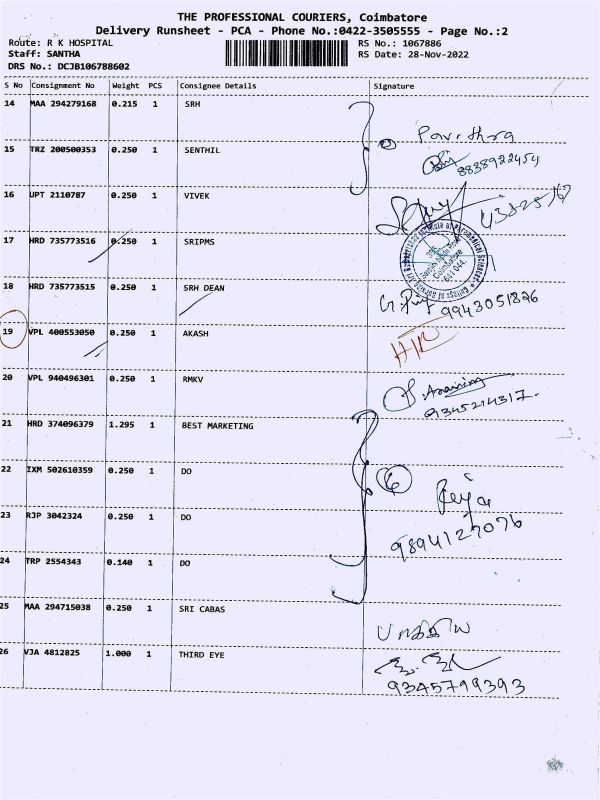 THE PROFESSIONAL COURIERS, Coimbatore
Delivery Runsheet - PCA - Phone No.:0422-3505555 - Page No.:2
Route: R K HOSPITAL
Staff: SANTHA
DRS No.: DCJB106788602
RS No.: 1067886
RS Date: 28-Nov-2022
S No Consignment No Weight PCS Consignee Details Signature
14 MAA 294279168 0.215 1 SRH
Pavithra
15 TRZ 200500353 0.250 1 SENTHIL
8838922454
16 UPT 2110787 0.250 1 VIVEK
17 HRD 735773516 0.250 1 SRIPMS
Coimbatore
641 044.
18 HRD 735773515 0.250 1 SRH DEAN
9943051826
19 VPL 400553050 0.250 1 AKASH
20 VPL 940496301 0.250 1 RMKV
9345214317.
21 HRD 374096379 1.295 1 BEST MARKETING
22 IXM 502610359 0.250 1 DO
6
23 RJP 3042324 0.250 1 DO
9894127076
24 TRP 2554343 0.140 1 DO
25 MAA 294715038 0.250 1 SRI CABAS
பாக்கிய
26 VJA 4812825 1.000 1 THIRD EYE
9345799393